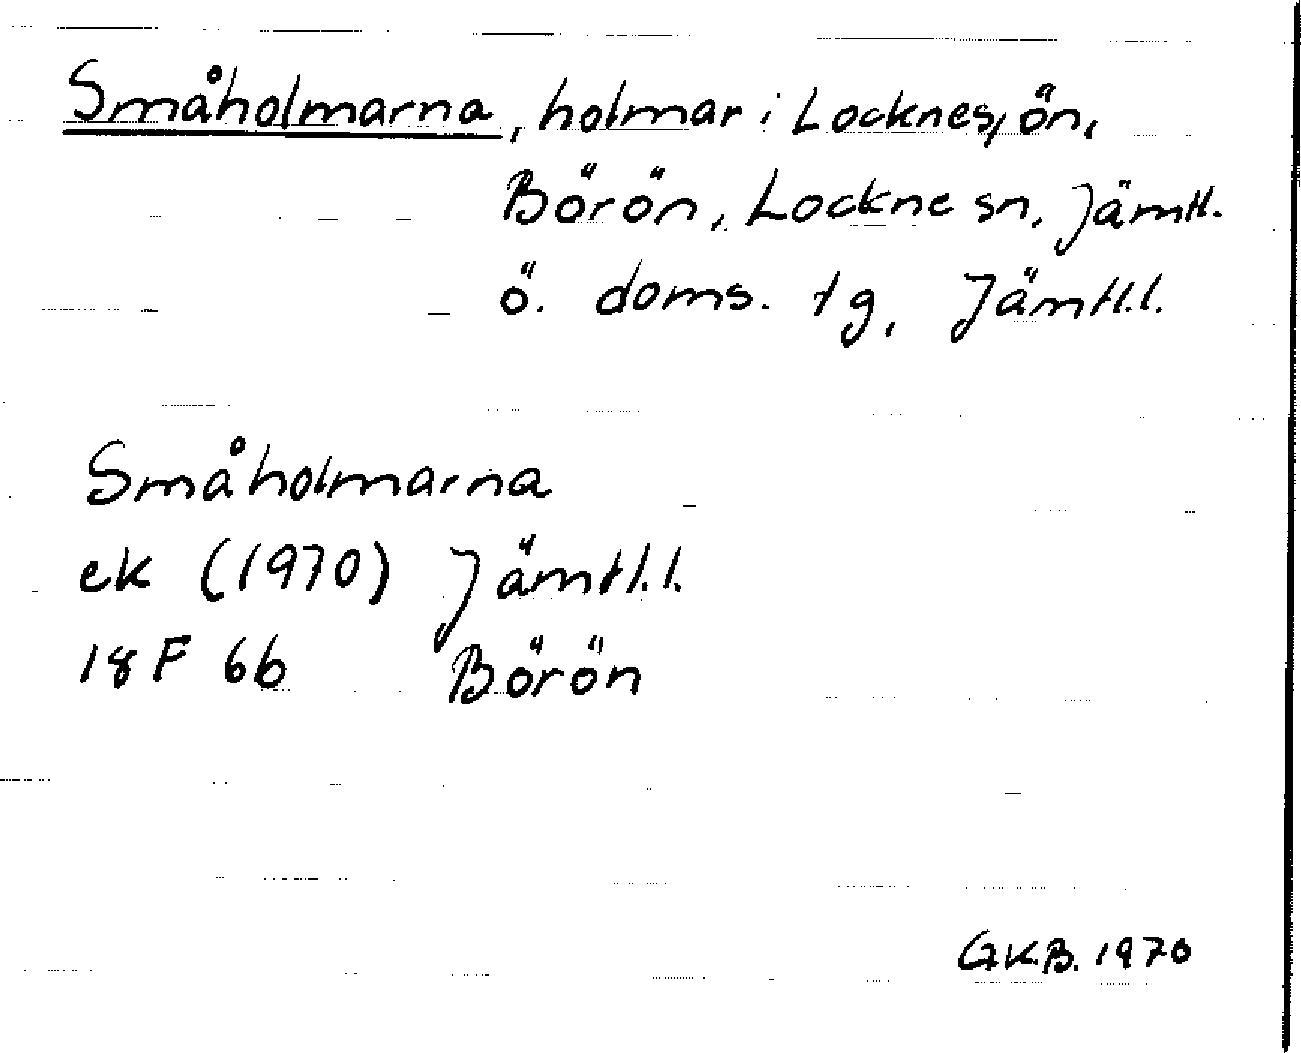 Småholmarna, holmar i Locknesjön,
Börön, Lockne sn, Jämtl.
ö. doms. tg, Jämtl.l.
Småholmarna
ek (1970) Jämtl.l.
18 F 6b Börön
G.K.B. 1970